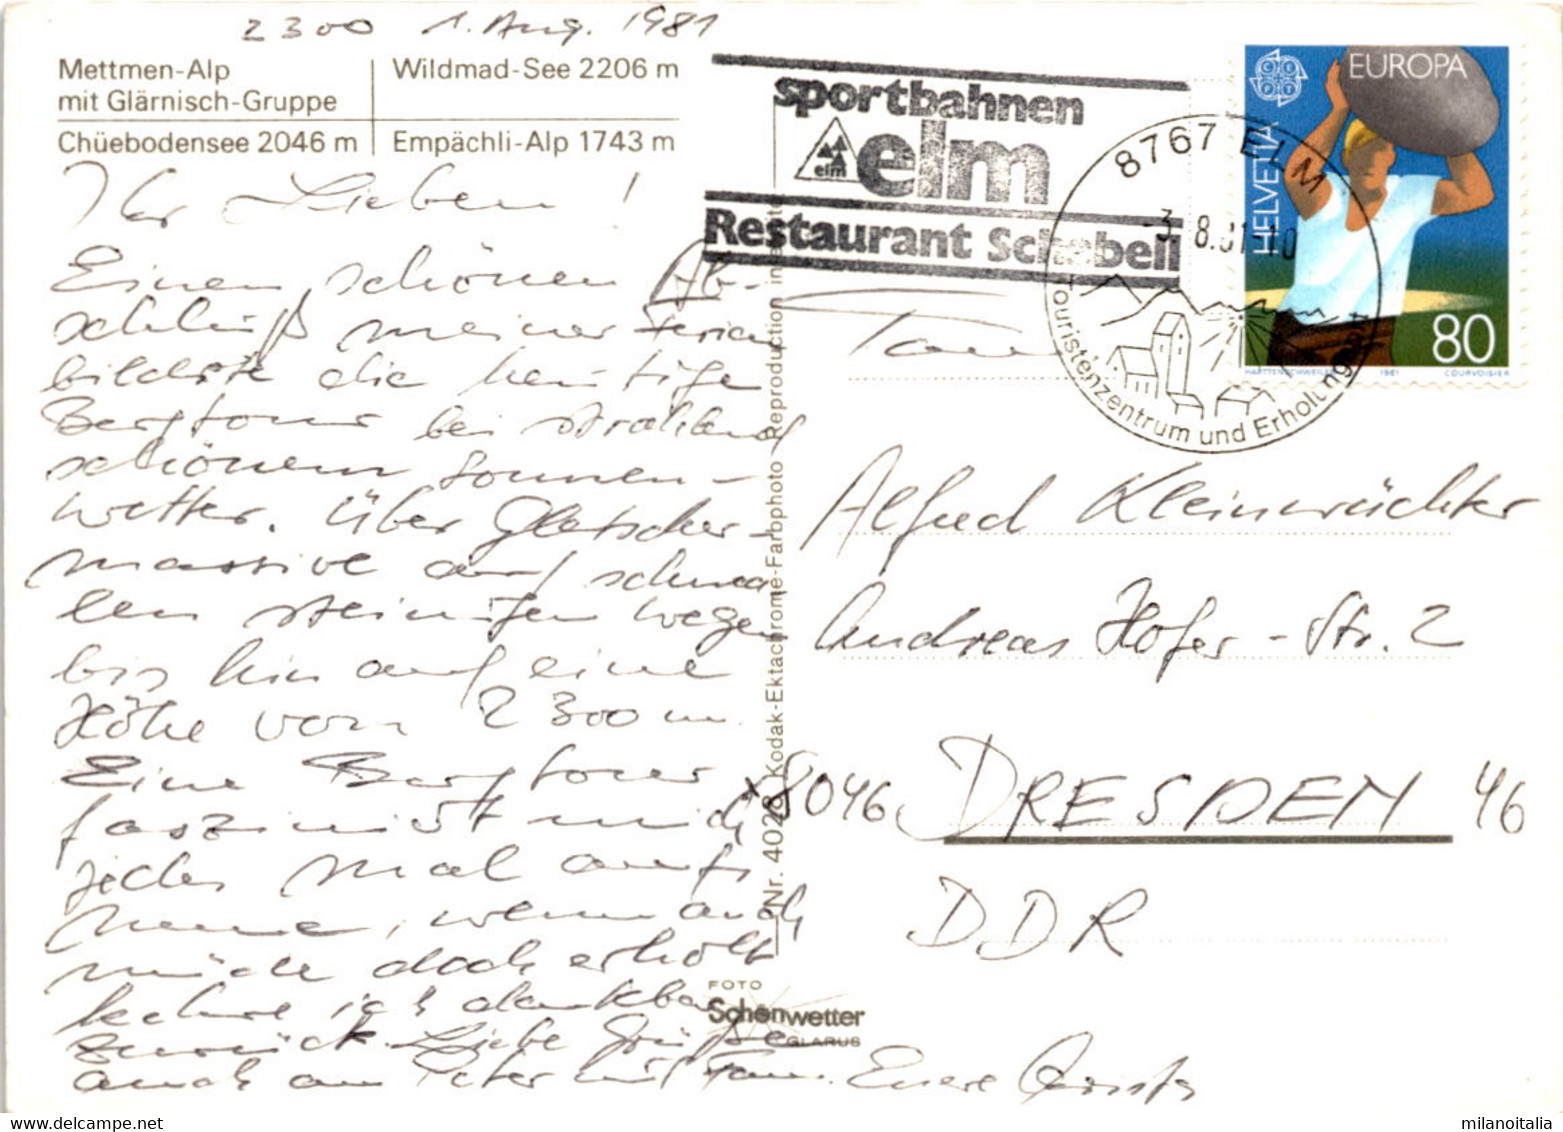 2300 1. Aug. 1981
Mettmen-Alp
mit Glärnisch-Gruppe
Wildmad-See 2206 m
Chüebodensee 2046 m
Empächli-Alp 1743 m
Ihr Lieben!
Einen schönen Ab-
schluß meiner Ferien
bildete die heutige
Bergtour bei strahlend
schönem Sonnen-
wetter. Über Gletscher-
massive auf schma
len steinigen Wegen
bis hin auf eine
Höhe von 2300 m.
Eine Bergtour
fasziniert mich
jedes Mal aufs
neue, wenn auch
müde doch erholt
kehre ich dankbar
zurück. Liebe Grüße
auch an Peter mit Fam. Eure
sportbahnen
elm
elm
Restaurant Schabell
8767 ELM
-3.8.81-10
Touristenzentrum und Erholung
EUROPA
HELVETIA
80
HARTTENSCHWEILER 1981 COURVOISIER
Fam.
Alfred Kleinwächter
Andreas Hofer-Str. 2
x8046 DRESDEN 46
DDR
Nr. 4028 Kodak-Ektachrome-Farbphoto Reproduction
FOTO
Schönwetter
GLARUS
milanoitalia